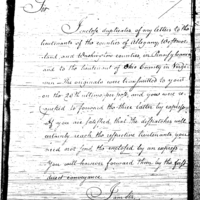 Sir
I enclose duplicates of my letters to the
lieutenants of the counties of Allegany, Westmore
land and Washington counties in Pennsylvania
and to the lieutenant of Ohio County in Virgi
nia. The originals were transmitted to you
on the 20th instant post, and you were re-
quested to forward the three letters by express.
If you are satisfied that the dispatches will
certainly reach the respective lieutenants you
need not send the enclosed by an express.
You will however forward them by the first
direct conveyance.
I am Sir